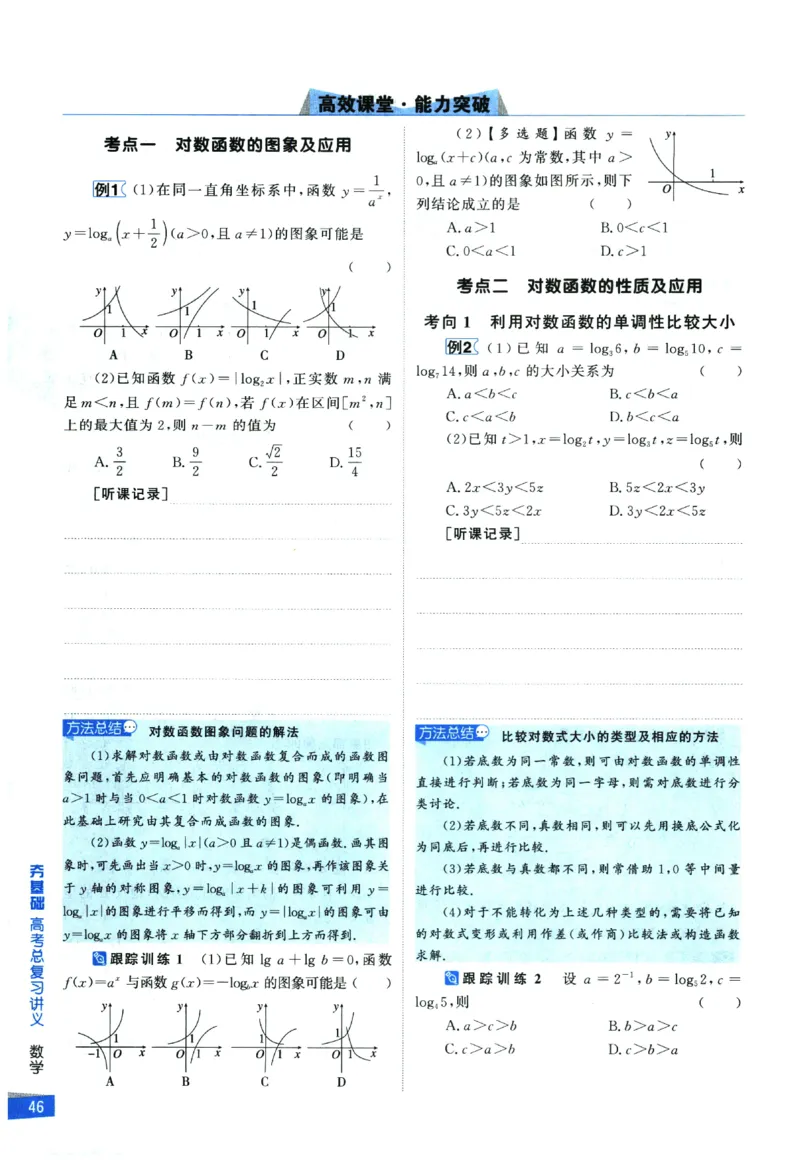 高效课堂·能力突破
考点一 对数函数的图象及应用
例1 (1)在同一直角坐标系中,函数 y=1/a^x,
y=log_a(x+1/2)(a>0,且 a≠1)的图象可能是
( )
y y y y
1 1 1 1
O 1 x O 1 x O 1 x O 1 x
A B C D
(2)已知函数 f(x)=|log₂x|,正实数 m,n 满
足 m<n,且 f(m)=f(n),若 f(x)在区间[m²,n]
上的最大值为 2,则 n-m 的值为 ( )
A. 3/2 B. 9/2 C. √2/2 D. 15/4
[听课记录]
方法总结 对数函数图象问题的解法
(1)求解对数函数或由对数函数复合而成的函数图
象问题,首先应明确基本的对数函数的图象(即明确当
a>1 时与当 0<a<1 时对数函数 y=log_a x 的图象),在
此基础上研究由其复合而成函数的图象.
(2)函数 y=log_a|x|(a>0 且 a≠1)是偶函数.画其图
象时,可先画出当 x>0 时,y=log_a x 的图象,再作该图象关
于 y 轴的对称图象,y=log_a|x+k|的图象可利用 y=
log_a|x|的图象进行平移而得到,而 y=|log_a x|的图象可由
y=log_a x 的图象将 x 轴下方部分翻折到上方而得到.
跟踪训练 1 (1)已知 lg a+lg b=0,函数
f(x)=a^x 与函数 g(x)=-log_b x 的图象可能是( )
y y y y
1 1 1 1
-1 O x O 1 x O 1 x O 1 x
A B C D
(2)【多选题】函数 y=
log_a(x+c)(a,c 为常数,其中 a>
0,且 a≠1)的图象如图所示,则下
列结论成立的是 ( )
y
1
O x
A. a>1 B. 0<c<1
C. 0<a<1 D. c>1
考点二 对数函数的性质及应用
考向 1 利用对数函数的单调性比较大小
例2 (1)已知 a=log₃6,b=log₅10,c=
log₇14,则 a,b,c 的大小关系为 ( )
A. a<b<c B. c<b<a
C. c<a<b D. b<c<a
(2)已知 t>1,x=log₂t,y=log₃t,z=log₅t,则
( )
A. 2x<3y<5z B. 5z<2x<3y
C. 3y<5z<2x D. 3y<2x<5z
[听课记录]
方法总结 比较对数式大小的类型及相应的方法
(1)若底数为同一常数,则可由对数函数的单调性
直接进行判断;若底数为同一字母,则需对底数进行分
类讨论.
(2)若底数不同,真数相同,则可以先用换底公式化
为同底后,再进行比较.
(3)若底数与真数都不同,则常借助 1,0 等中间量
进行比较.
(4)对于不能转化为上述几种类型的,需要将已知
的对数式变形或利用作差(或作商)比较法或构造函数
求解.
跟踪训练 2 设 a=2⁻¹,b=log₅2,c=
log₄5,则 ( )
A. a>c>b B. b>a>c
C. c>a>b D. c>b>a
夯基础 高考总复习讲义 数学
46